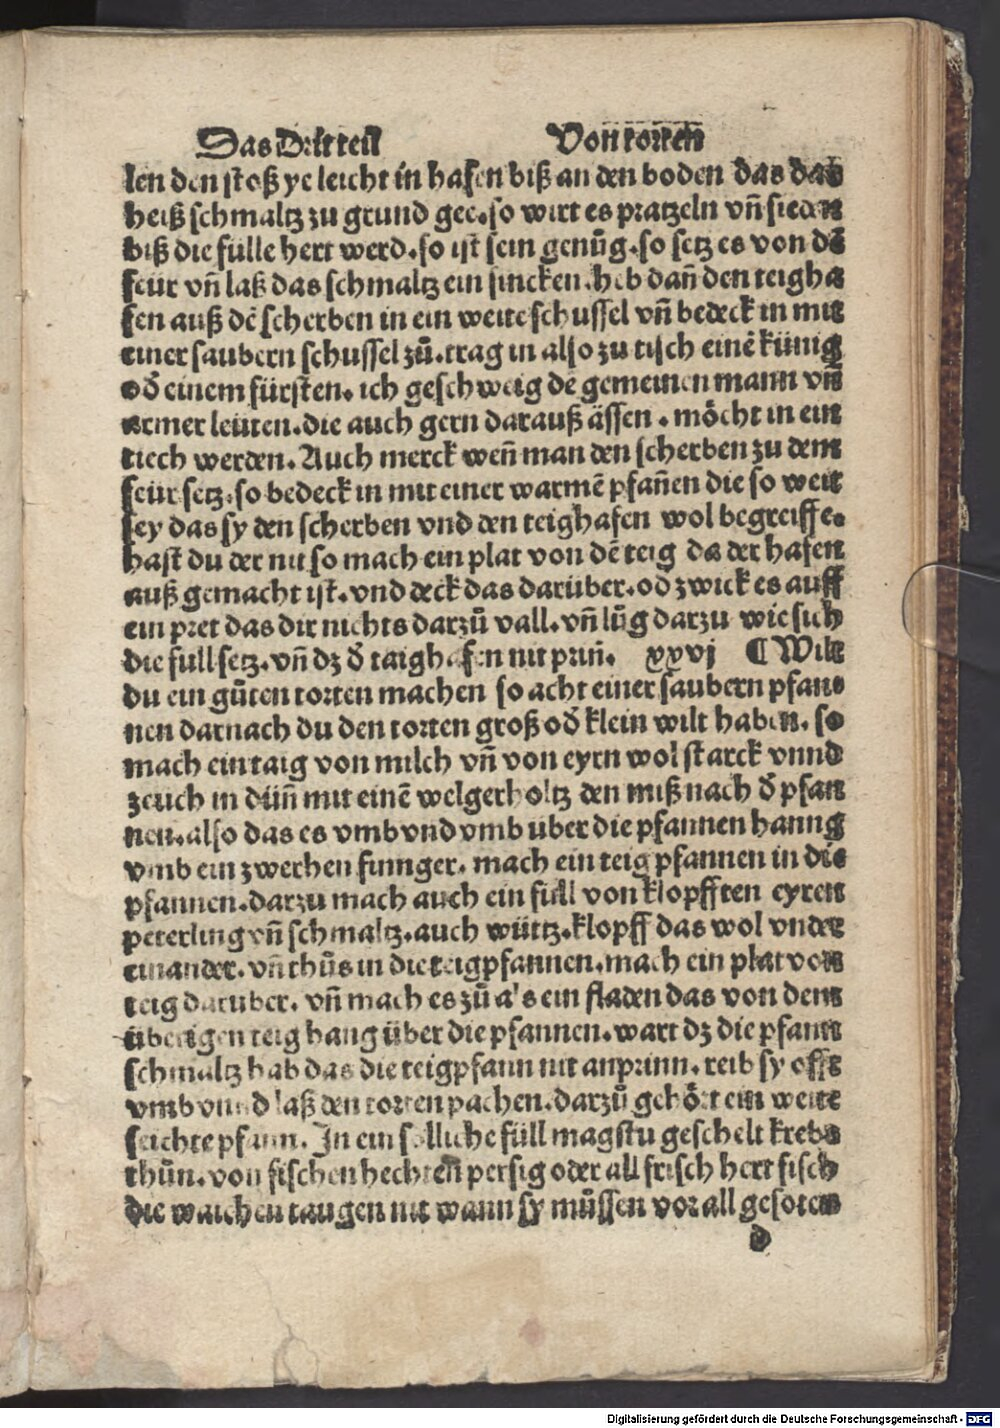 Das Dritteil Von torten
len den stoß ye leicht in hafen biß an den boden das das
heiß schmaltz zu grund gee. so wirt es pratzeln vn̄ sieden
biß die fülle hert werd. so ist sein genůg. so setz es von dē
feür vn̄ laß das schmaltz ein sincken. heb dan̄ den teigha
fen auß dē scherben in ein weite schussel vn̄ bedeck in mit
einer saubern schussel zů. trag in also zu tisch einē künig
oď einem fürsten. ich geschweig de gemeinen mann vn̄
armer leüten. die auch gern darauß ässen. möcht in ein
tiech werden. Auch merck wen̄ man den scherben zu dem
feür setz. so bedeck in mit einer warmē pfan̄en die so weit
sey das sy den scherben vnd den teighafen wol begreiffe.
hast du der nit so mach ein plat von dē teig da der hafen
auß gemacht ist. vnd deck das darüber. od zwick es auff
ein pret das dir nichts darzů vall. vn̄ lůg darzu wie sich
die full setz. vn̄ dz ď taighafen nit prin̄. xxvj ¶ Wilt
du ein gůten torten machen so acht einer saubern pfan⸗
nen darnach du den torten groß oď klein wilt haben. so
mach ein taig von milch vn̄ von eyrn wol starck vnnd
zeuch in dün̄ mit einē welgerholtz den miß nach ď pfan
nen. also das es vmb vnd vmb uber die pfannen hanng
vmb ein zwerhen finnger. mach ein teig pfannen in die
pfannen. darzu mach auch ein full von klopfften eyren
peterling vn̄ schmaltz. auch würtz. klopff das wol vnder
einander. vn̄ thůs in die teigpfannen. mach ein plat von
teig daruber. vn̄ mach es zů als ein fladen das von dem
überigen teig hang über die pfannen. wart dz die pfann
schmaltz hab das die teigpfann nit anprinn. reib sy offt
vmb vnnd laß den torten pachen. darzů gehört ein weite
seichte pfann. In ein solliche füll magstu geschelt krebs
thůn. von fischen hechten persig oder all frisch hert fisch
die waichen taugen nit wann sy můssen vor all gesoten
d
Digitalisierung gefördert durch die Deutsche Forschungsgemeinschaft - DFG